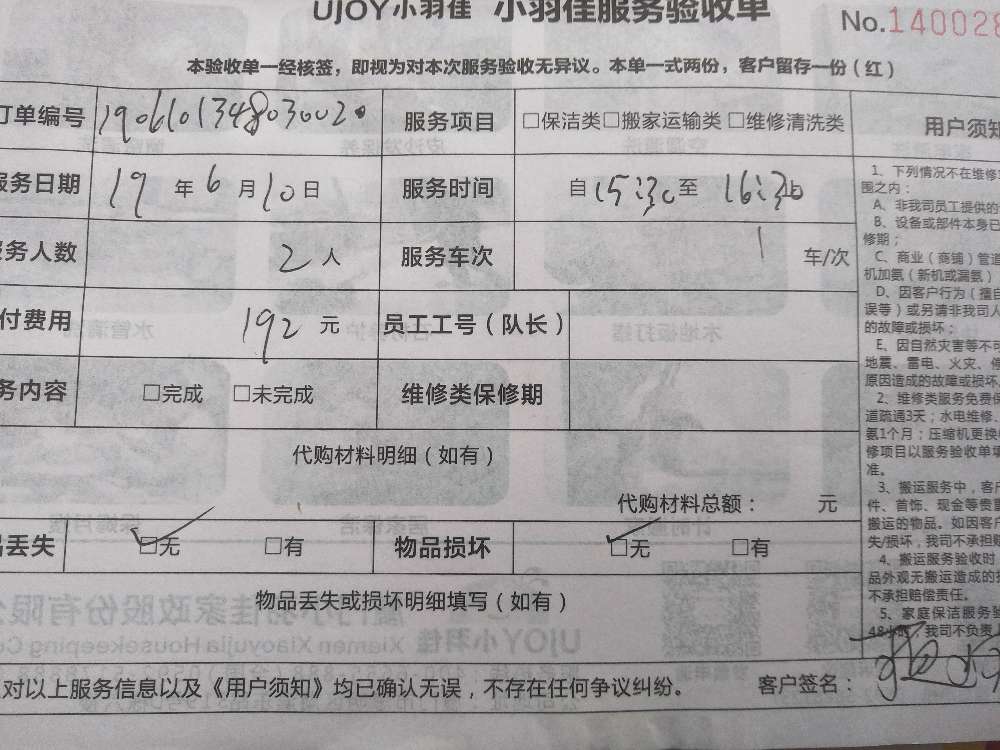 UJOY小羽佳 小羽佳服务验收单
No.140028
本验收单一经核签，即视为对本次服务验收无异议。本单一式两份，客户留存一份（红）
订单编号 1906101348030020 服务项目 □保洁类□搬家运输类 □维修清洗类 用户须知
服务日期 19 年 6 月 10 日 服务时间 自 15:30 至 16:30
服务人数 2 人 服务车次 1 车/次
付费用 192 元 员工工号（队长）
务内容 □完成 □未完成 维修类保修期
代购材料明细（如有）
代购材料总额： 元
品丢失 ☑无 □有 物品损坏 ☑无 □有
物品丢失或损坏明细填写（如有）
对以上服务信息以及《用户须知》均已确认无误，不存在任何争议纠纷。 客户签名：
1、下列情况不在维修
围之内：
A、非我司员工提供的
B、设备或部件本身已
修期；
C、商业（商铺）管道
机加氨（新机或漏氨）
D、因客户行为（擅自
误等）或另请非我司人
的故障或损坏；
E、因自然灾害等不可
地震、雷电、火灾、
原因造成的故障或损坏
2、维修类服务免费保
道疏通3天；水电维修、
氨1个月；压缩机更换
修项目以服务验收单填
准。
3、搬运服务中，客户
件、首饰、现金等贵重
搬运的物品。如因客户
失/损坏，我司不承担赔
4、搬运服务验收时，
品外观无搬运造成的损
不承担赔偿责任。
5、家庭保洁服务验
48小时，我司不负责